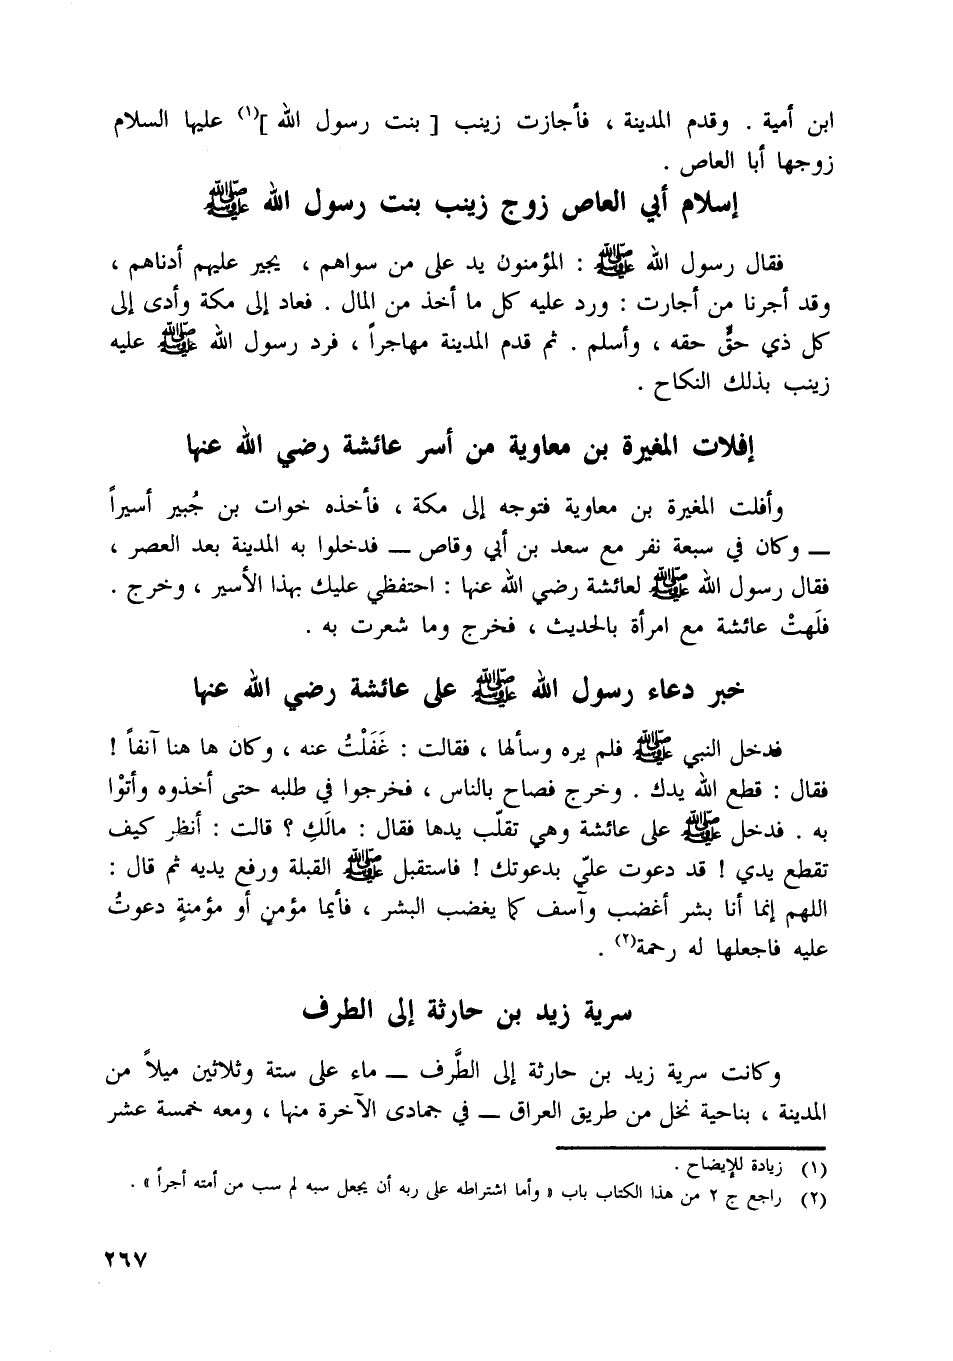 ابن أمية . وقدم المدينة ، فأجازت زينب [ بنت رسول الله ](١) عليها السلام
زوجها أبا العاص .
إسلام أبي العاص زوج زينب بنت رسول الله ﷺ
فقال رسول الله ﷺ : المؤمنون يد على من سواهم ، يجير عليهم أدناهم ،
وقد أجرنا من أجارت : ورد عليه كل ما أخذ من المال . فعاد إلى مكة وأدى إلى
كل ذي حقٍّ حقه ، وأسلم . ثم قدم المدينة مهاجراً ، فرد رسول الله ﷺ عليه
زينب بذلك النكاح .
إفلات المغيرة بن معاوية من أسر عائشة رضي الله عنها
وأفلت المغيرة بن معاوية فتوجه إلى مكة ، فأخذه خوات بن جُبير أسيراً
ــ وكان في سبعة نفر مع سعد بن أبي وقاص ــ فدخلوا به المدينة بعد العصر ،
فقال رسول الله ﷺ لعائشة رضي الله عنها : احتفظي عليك بهذا الأسير ، وخرج .
فلَهتْ عائشة مع امرأة بالحديث ، فخرج وما شعرت به .
خبر دعاء رسول الله ﷺ على عائشة رضي الله عنها
فدخل النبي ﷺ فلم يره وسألها ، فقالت : غَفَلْتُ عنه ، وكان ها هنا آنفاً !
فقال : قطع الله يدك . وخرج فصاح بالناس ، فخرجوا في طلبه حتى أخذوه وأتوْا
به . فدخل ﷺ على عائشة وهي تقلّب يدها فقال : مالَكِ ؟ قالت : أنظر كيف
تقطع يدي ! قد دعوت عليّ بدعوتك ! فاستقبل ﷺ القبلة ورفع يديه ثم قال :
اللهم إنما أنا بشر أغضب وآسف كما يغضب البشر ، فأيما مؤمنٍ أو مؤمنةٍ دعوتُ
عليه فاجعلها له رحمة(٢) .
سرية زيد بن حارثة إلى الطرف
وكانت سرية زيد بن حارثة إلى الطَّرف ــ ماء على ستة وثلاثين ميلاً من
المدينة ، بناحية نخل من طريق العراق ــ في جمادى الآخرة منها ، ومعه خمسة عشر
(١) زيادة للإيضاح .
(٢) راجع ج ٢ من هذا الكتاب باب « وأما اشتراطه على ربه أن يجعل سبه لم سب من أمته أجراً » .
٢٦٧